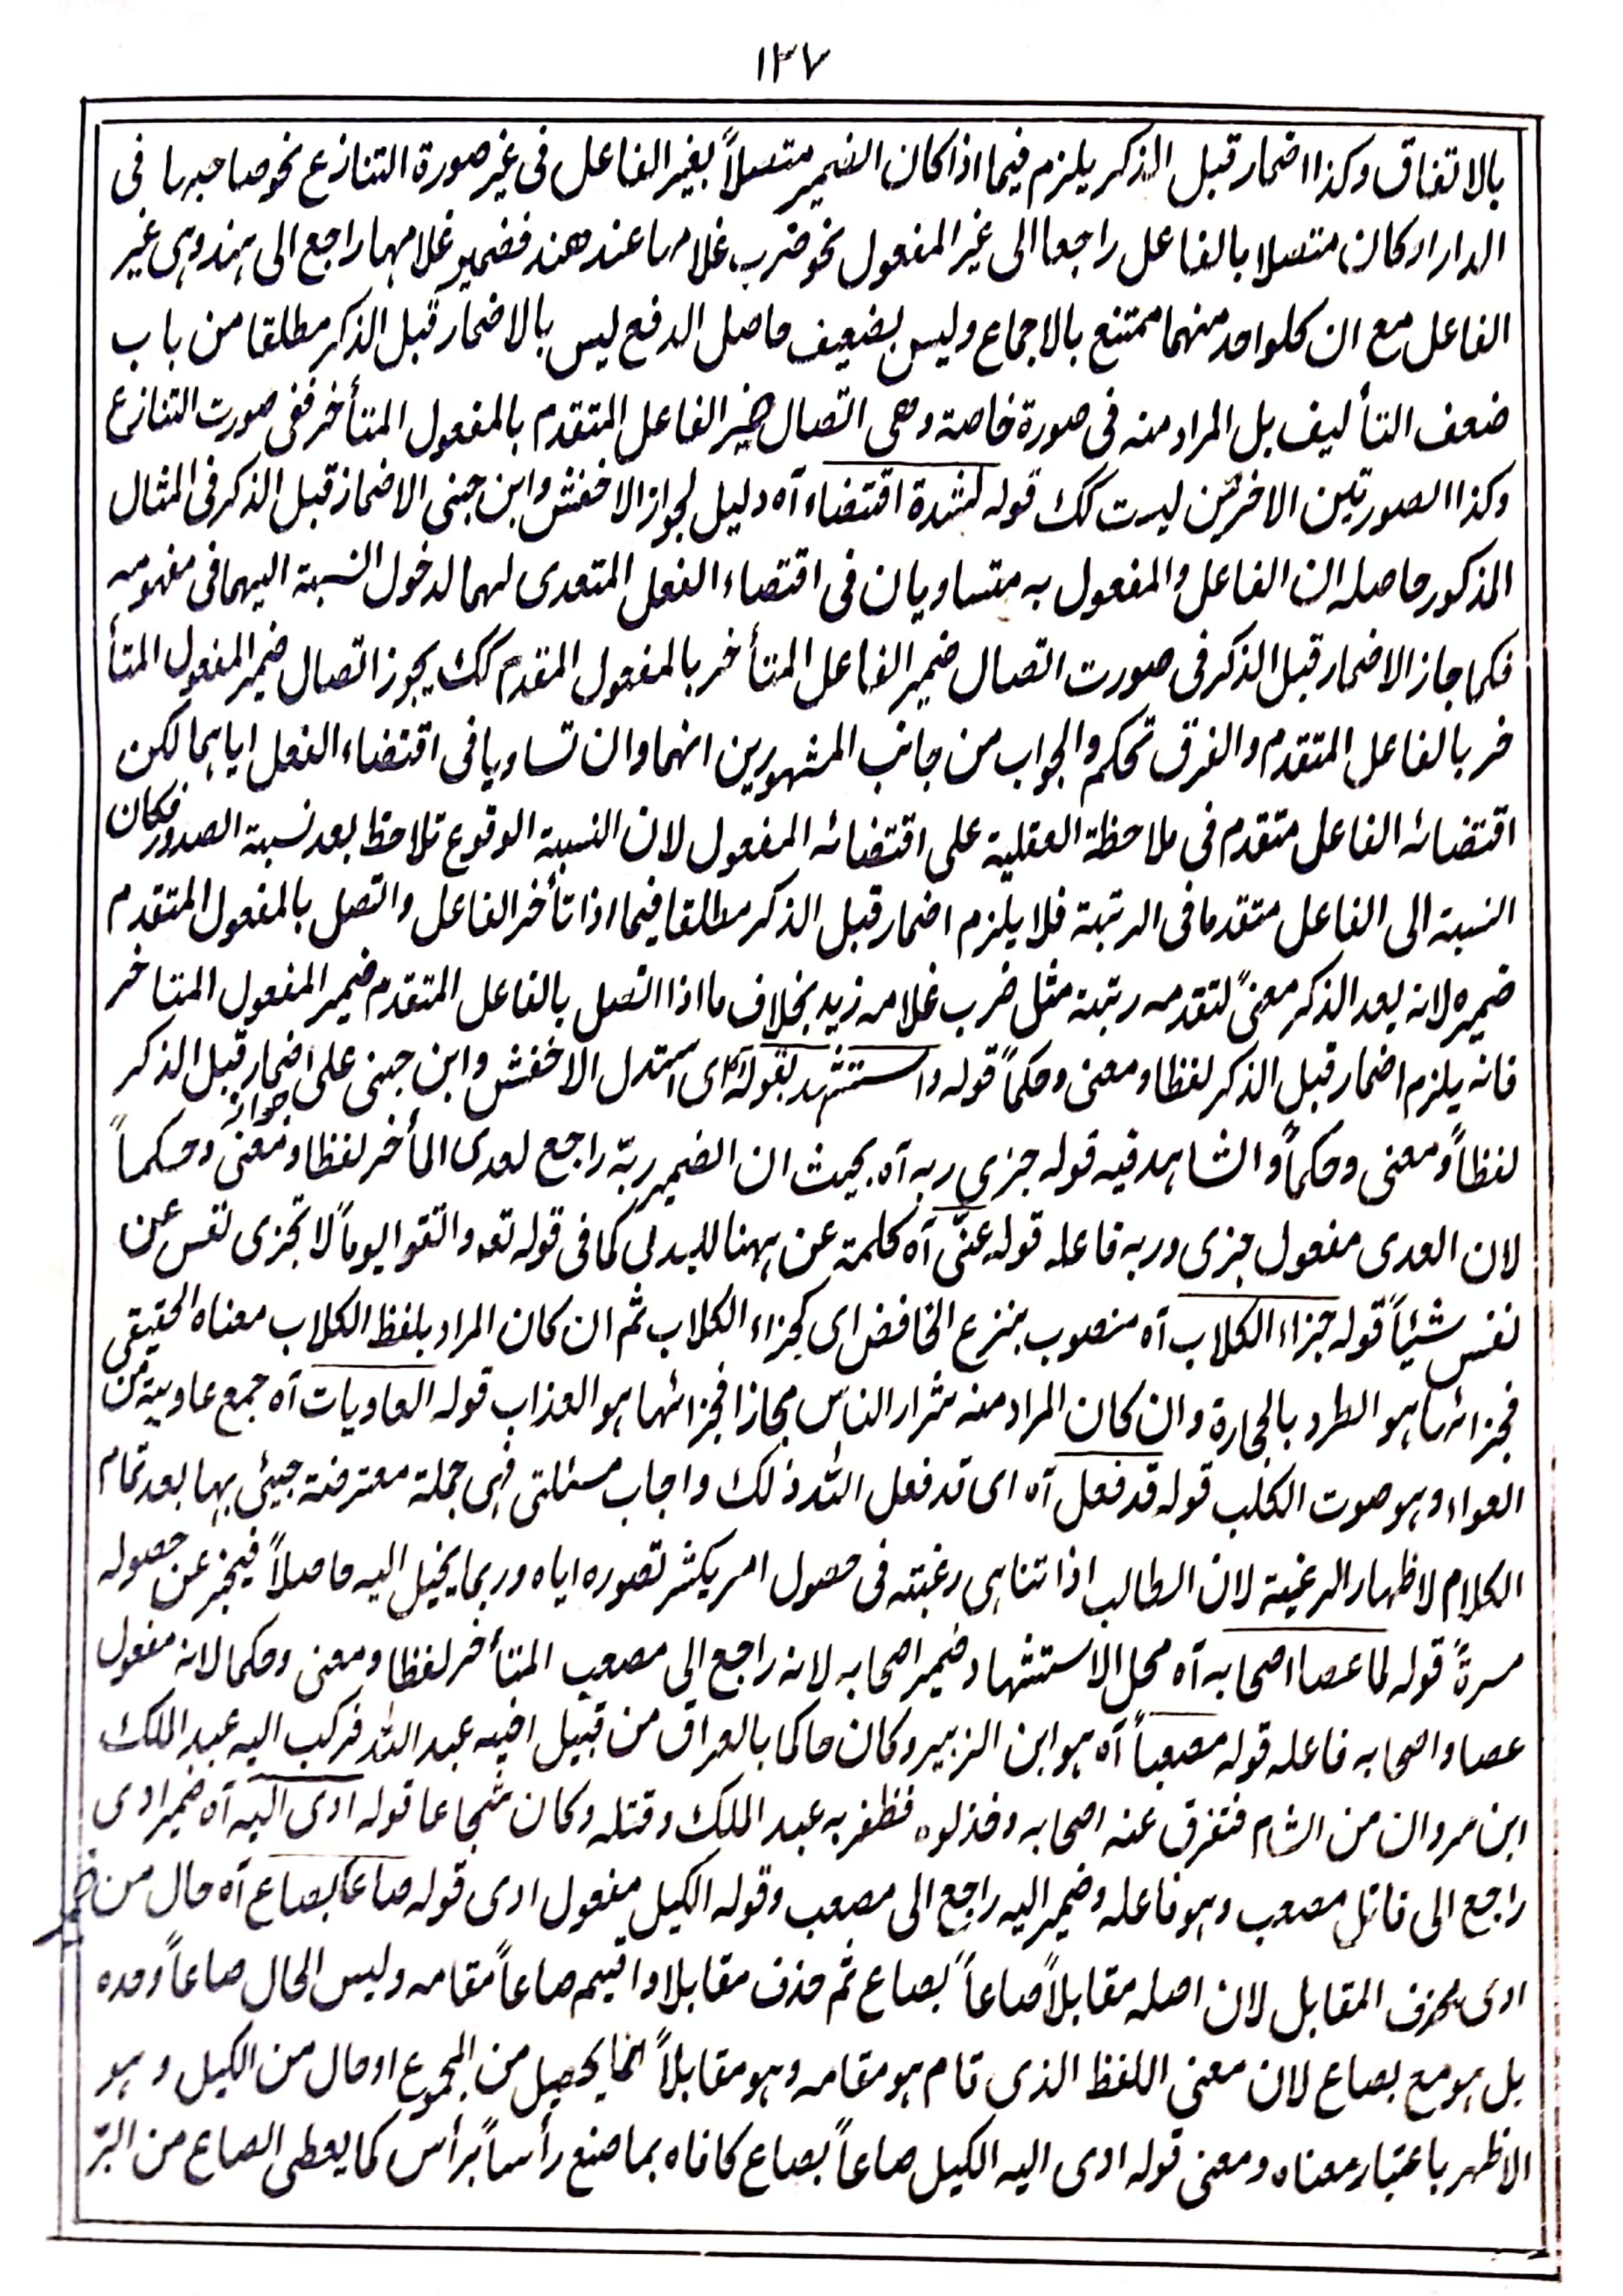 ١٣٧
بالاتفاق وكذا اضمار قبل الذكر يلزم فيما اذا كان الضمير متصلاً بغير الفاعل فى غير صورة التنازع نحو صاحبها فى
الدار او كان متصلا بالفاعل راجعا الى غير المفعول نحو ضرب غلامها عند هند فضمير غلامها راجع الى هند وهى غير
الفاعل مع ان كلواحد منهما ممتنع بالاجماع وليس بضعيف حاصل الدفع ليس بالاضمار قبل الذكر مطلقا من باب
ضعف التأليف بل المراد منه فى صورة خاصة وهى اتصال ضمير الفاعل المتقدم بالمفعول المتأخر ففى صورت التنازع
وكذا الصورتين الاخرتين ليست كك قوله لشدة اقتضاء آه دليل لجواز الاخفش وابن جنى الاضمار قبل الذكر فى المثال
المذكور حاصله ان الفاعل والمفعول به متساويان فى اقتضاء الفعل المتعدى لهما لدخول النسبة اليهما فى مفهومه
فكما جاز الاضمار قبل الذكر فى صورت اتصال ضمير الفاعل المتأخر بالمفعول المقدم كك يجوز اتصال ضمير المفعول المتأ
خر بالفاعل المتقدم والفرق تحكم والجواب من جانب المشهورين انهما وان تساويا فى اقتضاء الفعل اياهما لكن
اقتضائه الفاعل متقدم فى ملاحظة العقلية على اقتضائه المفعول لان النسبة الوقوع تلاحظ بعد نسبة الصدور فكان
النسبة الى الفاعل متقدما فى الرتبة فلا يلزم اضمار قبل الذكر مطلقا فيما اذا تأخر الفاعل واتصل بالمفعول المتقدم
ضميره لانه بعد الذكر معنىً لتقدمه رتبة مثل ضرب غلامه زيد بخلاف ما اذا اتصل بالفاعل المتقدم ضمير المفعول المتاخر
فانه يلزم اضمار قبل الذكر لفظا ومعنى وحكماً قوله واستشهد بقوله آه اى استدل الاخفش وابن جنى على جواز اضمار قبل الذكر
لفظاً ومعنى وحكماً والشاهد فيه قوله جزى ربه آه بحيث ان الضمير ربّه راجع لعدى المأخر لفظا ومعنى وحكماً
لان العدى مفعول جزى وربه فاعله قوله عنّى آه كلمة عن ههنا للبدل كما فى قوله تعه واتقوا يوماً لا تجزى نفس عن
نفس شيئاً قوله جزاء الكلاب آه منصوب بنزع الخافض اى كجزاء الكلاب ثم ان كان المراد بلفظ الكلاب معناه الحقيقى
فجزائها هو الطرد بالحجارة وان كان المراد منه شرار الناس مجازا فجزائها هو العذاب قوله العاويات آه جمع عاوية من
العواء وهو صوت الكلب قوله قد فعل آه اى قد فعل الله ذلك واجاب مسئلتى فهى جملة معترضة جيئى بها بعد تمام
الكلام لاظهار الرغبة لان الطالب اذا تناهى رغبته فى حصول امر يكثر تصوره اياه وربما يخيل اليه حاصلاً فيخبر عن حصوله
مسرةً قوله لما عصا اصحابه آه محل الاستشهاد ضمير اصحابه لانه راجع الى مصعب المتأخر لفظا ومعنى وحكما لانه مفعول
عصا واصحابه فاعله قوله مصعباً آه هو ابن الزبير وكان حاكما بالعراق من قبيل اخيه عبد الله فركب اليه عبد الملك
ابن مروان من الشام فتفرق عنه اصحابه وخذلوه فظفر به عبد الملك وقتله وكان شجاعا قوله ادى اليه آه ضمير ادى
راجع الى قاتل مصعب وهو فاعله وضمير اليه راجع الى مصعب وقوله الكيل مفعول ادى قوله صاعا بصاع آه حال من ضمير
ادى بحذف المقابل لان اصله مقابلاً صاعاً بصاع ثم حذف مقابلا واقيم صاعاً مقامه وليس الحال صاعاً وحده
بل هو مع بصاع لان معنى اللفظ الذى قام هو مقامه وهو مقابلاً انما يحصل من المجموع او حال من الكيل وهو
الاظهر باعتبار معناه ومعنى قوله ادى اليه الكيل صاعاً بصاع كافاه بما صنع رأساً برأس كما يعطى الصاع من البرّ